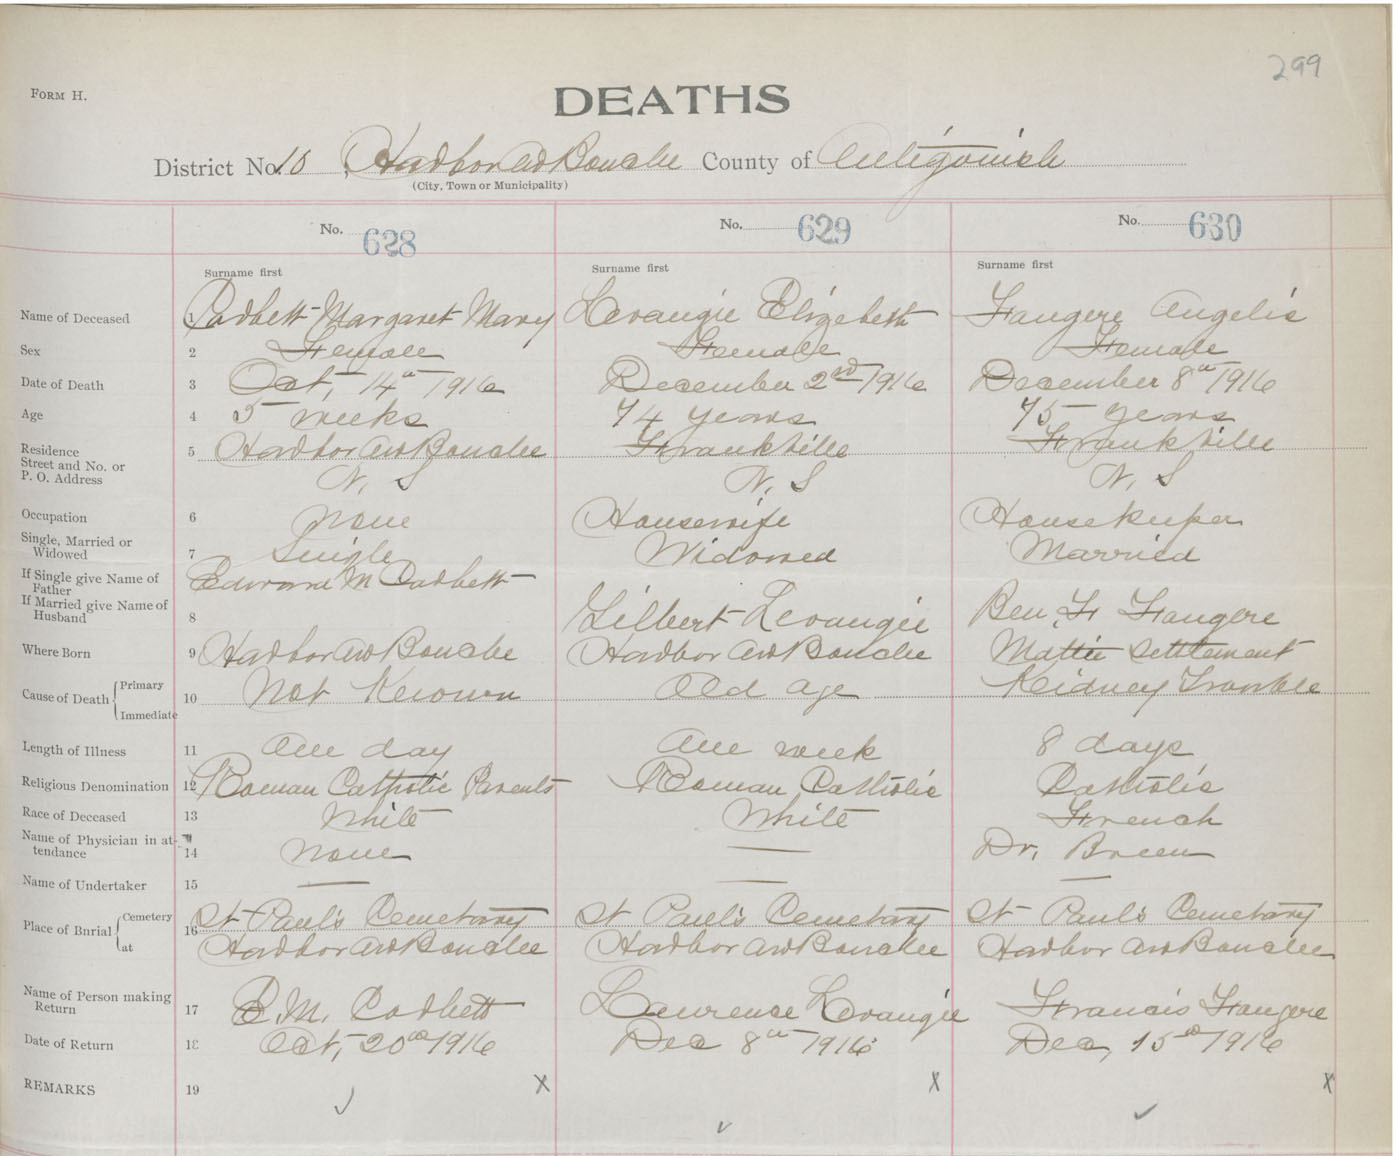 299
FORM H.
DEATHS
District No. 10, Harbor au Bouche County of Antigonish
(City, Town or Municipality)
No. 628 No. 629 No. 630
Surname first Surname first Surname first
Name of Deceased 1 Corbett Margaret Mary Levangie Elizebeth Fougere Angelis
Sex 2 Female Female Female
Date of Death 3 Oct, 14th 1916 December 2nd 1916 December 8th 1916
Age 4 5 weeks 74 years 75 years
Residence
Street and No. or
P. O. Address
5 Harbor au Bouche Frankville Frankville
N, S N, S N, S
Occupation 6 None Housewife Housekeeper
Single, Married or
Widowed
7 Single Widowed Married
If Single give Name of
Father
Edward M Corbett
If Married give Name of
Husband
8 Gilbert Levangie Ben, F Fougere
Where Born 9 Harbor au Bouche Harbor au Bouche Mattie Settlement
Cause of Death { Primary
Immediate
10 Not Known Old age Kidney Trouble
Length of Illness 11 One day One week 8 days
Religious Denomination 12 Roman Catholic Parents Roman Catholic Catholic
Race of Deceased 13 White White French
Name of Physician in at-
tendance
14 None — Dr. Breen
Name of Undertaker 15 — — —
Place of Burial { Cemetery
at
16 St Paul's Cemetary St Paul's Cemetary St Paul's Cemetary
Harbor au Bouche Harbor au Bouche Harbor au Bouche
Name of Person making
Return
17 E. M. Corbett Lawrence Levangie Francis Fougere
Date of Return 18 Oct, 20th 1916 Dec 8th 1916 Dec, 15th 1916
REMARKS 19 x x x